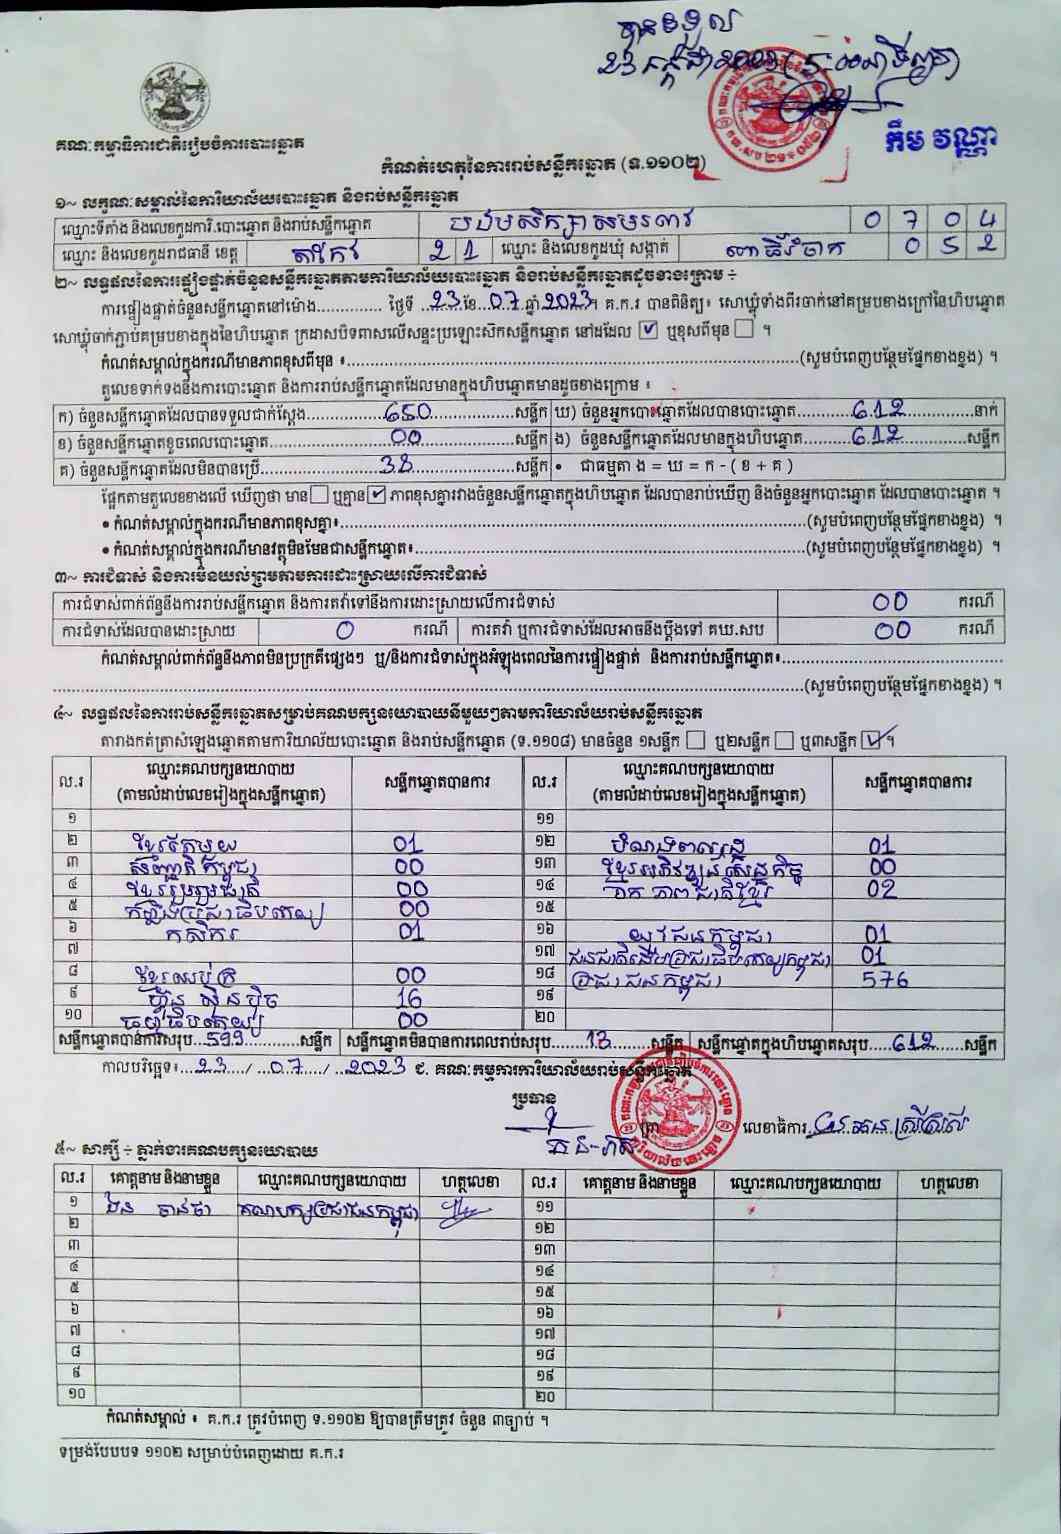 បានទទួល
គណៈកម្មាធិការជាតិរៀបចំការបោះឆ្នោត
កឹម វណ្ណា
កំណត់ហេតុនៃការរាប់សន្លឹកឆ្នោត (ទ.១១០២)
១~ លក្ខណៈសម្គាល់នៃការិយាល័យបោះឆ្នោត និងរាប់សន្លឹកឆ្នោត
ឈ្មោះទីតាំង និងលេខកូដការិ.បោះឆ្នោត និងរាប់សន្លឹកឆ្នោត 0 7 0 4
ឈ្មោះ និងលេខកូដរាជធានី ខេត្ត តាកែវ 2 1 ឈ្មោះ និងលេខកូដឃុំ សង្កាត់ 0 5 2
២~ លទ្ធផលនៃការផ្ទៀងផ្ទាត់ចំនួនសន្លឹកឆ្នោតតាមការិយាល័យបោះឆ្នោត និងរាប់សន្លឹកឆ្នោតដូចខាងក្រោម ÷
ការផ្ទៀងផ្ទាត់ចំនួនសន្លឹកឆ្នោតនៅម៉ោង.............. ថ្ងៃទី ..23..ខែ..07..ឆ្នាំ.2023។ គ.ក.រ បានពិនិត្យ៖ សោឃ្លុំទាំងពីរចាក់នៅគម្របខាងក្រៅនៃហិបឆ្នោត
សោឃ្លុំចាក់ភ្ជាប់គម្របខាងក្នុងនៃហិបឆ្នោត ក្រដាសបិទពាសលើសន្ទះប្រឡោះស៊កសន្លឹកឆ្នោត នៅដដែល ☑ ឬខុសពីមុន ☐ ។
កំណត់សម្គាល់ក្នុងករណីមានភាពខុសពីមុន ៖..........(សូមបំពេញបន្ថែមផ្នែកខាងខ្នង) ។
តួលេខទាក់ទងនឹងការបោះឆ្នោត និងការរាប់សន្លឹកឆ្នោតដែលមានក្នុងហិបឆ្នោតមានដូចខាងក្រោម ៖
ក) ចំនួនសន្លឹកឆ្នោតដែលបានទទួលជាក់ស្តែង..........650..........សន្លឹក ឃ) ចំនួនអ្នកបោះឆ្នោតដែលបានបោះឆ្នោត..........612..........នាក់
ខ) ចំនួនសន្លឹកឆ្នោតខូចពេលបោះឆ្នោត..........00..........សន្លឹក ង) ចំនួនសន្លឹកឆ្នោតដែលមានក្នុងហិបឆ្នោត..........612..........សន្លឹក
គ) ចំនួនសន្លឹកឆ្នោតដែលមិនបានប្រើ..........38..........សន្លឹក • ជាធម្មតា ង = ឃ = ក - ( ខ + គ )
ផ្អែកតាមតួលេខខាងលើ ឃើញថា មាន ☐ ឬគ្មាន ☑ ភាពខុសគ្នារវាងចំនួនសន្លឹកឆ្នោតក្នុងហិបឆ្នោត ដែលបានរាប់ឃើញ និងចំនួនអ្នកបោះឆ្នោត ដែលបានបោះឆ្នោត ។
• កំណត់សម្គាល់ក្នុងករណីមានភាពខុសគ្នា៖..........(សូមបំពេញបន្ថែមផ្នែកខាងខ្នង) ។
• កំណត់សម្គាល់ក្នុងករណីមានវត្ថុមិនមែនជាសន្លឹកឆ្នោត៖..........(សូមបំពេញបន្ថែមផ្នែកខាងខ្នង) ។
៣~ ការជំទាស់ និងការមិនយល់ព្រមតាមការដោះស្រាយលើការជំទាស់
ការជំទាស់ពាក់ព័ន្ធនឹងការរាប់សន្លឹកឆ្នោត និងការតវ៉ាទៅនឹងការដោះស្រាយលើការជំទាស់ 00 ករណី
ការជំទាស់ដែលបានដោះស្រាយ 0 ករណី ការតវ៉ា ឬការជំទាស់ដែលអាចនឹងប្តឹងទៅ គឃ.សប 00 ករណី
កំណត់សម្គាល់ពាក់ព័ន្ធនឹងភាពមិនប្រក្រតីផ្សេងៗ ឬ/និងការជំទាស់ក្នុងអំឡុងពេលនៃការផ្ទៀងផ្ទាត់ និងការរាប់សន្លឹកឆ្នោត៖..........
..........(សូមបំពេញបន្ថែមផ្នែកខាងខ្នង) ។
៤~ លទ្ធផលនៃការរាប់សន្លឹកឆ្នោតសម្រាប់គណបក្សនយោបាយនីមួយៗតាមការិយាល័យរាប់សន្លឹកឆ្នោត
តារាងកត់ត្រាសំឡេងឆ្នោតតាមការិយាល័យបោះឆ្នោត និងរាប់សន្លឹកឆ្នោត (ទ.១១០៨) មានចំនួន ១សន្លឹក ☐ ឬ២សន្លឹក ☐ ឬ៣សន្លឹក ☑ ។
ល.រ ឈ្មោះគណបក្សនយោបាយ (តាមលំដាប់លេខរៀងក្នុងសន្លឹកឆ្នោត) សន្លឹកឆ្នោតបានការ ល.រ ឈ្មោះគណបក្សនយោបាយ (តាមលំដាប់លេខរៀងក្នុងសន្លឹកឆ្នោត) សន្លឹកឆ្នោតបានការ
១ ១១
២ ខ្មែរតែមួយ 01 ១២ 01
៣ សញ្ជាតិកម្ពុជា 00 ១៣ ខ្មែរអភិវឌ្ឍន៍សេដ្ឋកិច្ច 00
៤ ខ្មែររួបរួមជាតិ 00 ១៤ ឯកភាពជាតិខ្មែរ 02
៥ 00 ១៥
៦ កសិករ 01 ១៦ យុវជនកម្ពុជា 01
៧ ១៧ ជនជាតិដើមប្រជាធិបតេយ្យកម្ពុជា 01
៨ ខ្មែរឈប់ក្រ 00 ១៨ ប្រជាជនកម្ពុជា 576
៩ ហ៊្វុនស៊ិនប៉ិច 16 ១៩
១០ ធម្មាធិបតេយ្យ 00 ២០
សន្លឹកឆ្នោតបានការសរុប...599...សន្លឹក សន្លឹកឆ្នោតមិនបានការពេលរាប់សរុប...13...សន្លឹក សន្លឹកឆ្នោតក្នុងហិបឆ្នោតសរុប...612...សន្លឹក
កាលបរិច្ឆេទ៖...23.../...07.../...2023 ជ. គណៈកម្មការការិយាល័យរាប់សន្លឹកឆ្នោត
ប្រធាន
លេខាធិការ
៥~ សាក្សី ÷ ភ្នាក់ងារគណបក្សនយោបាយ
ល.រ គោត្តនាម និងនាមខ្លួន ឈ្មោះគណបក្សនយោបាយ ហត្ថលេខា ល.រ គោត្តនាម និងនាមខ្លួន ឈ្មោះគណបក្សនយោបាយ ហត្ថលេខា
១ គណបក្សប្រជាជនកម្ពុជា ១១
២ ១២
៣ ១៣
៤ ១៤
៥ ១៥
៦ ១៦
៧ ១៧
៨ ១៨
៩ ១៩
១០ ២០
កំណត់សម្គាល់ ៖ គ.ក.រ ត្រូវបំពេញ ទ.១១០២ ឱ្យបានត្រឹមត្រូវ ចំនួន ៣ច្បាប់ ។
ទម្រង់បែបបទ ១១០២ សម្រាប់បំពេញដោយ គ.ក.រ